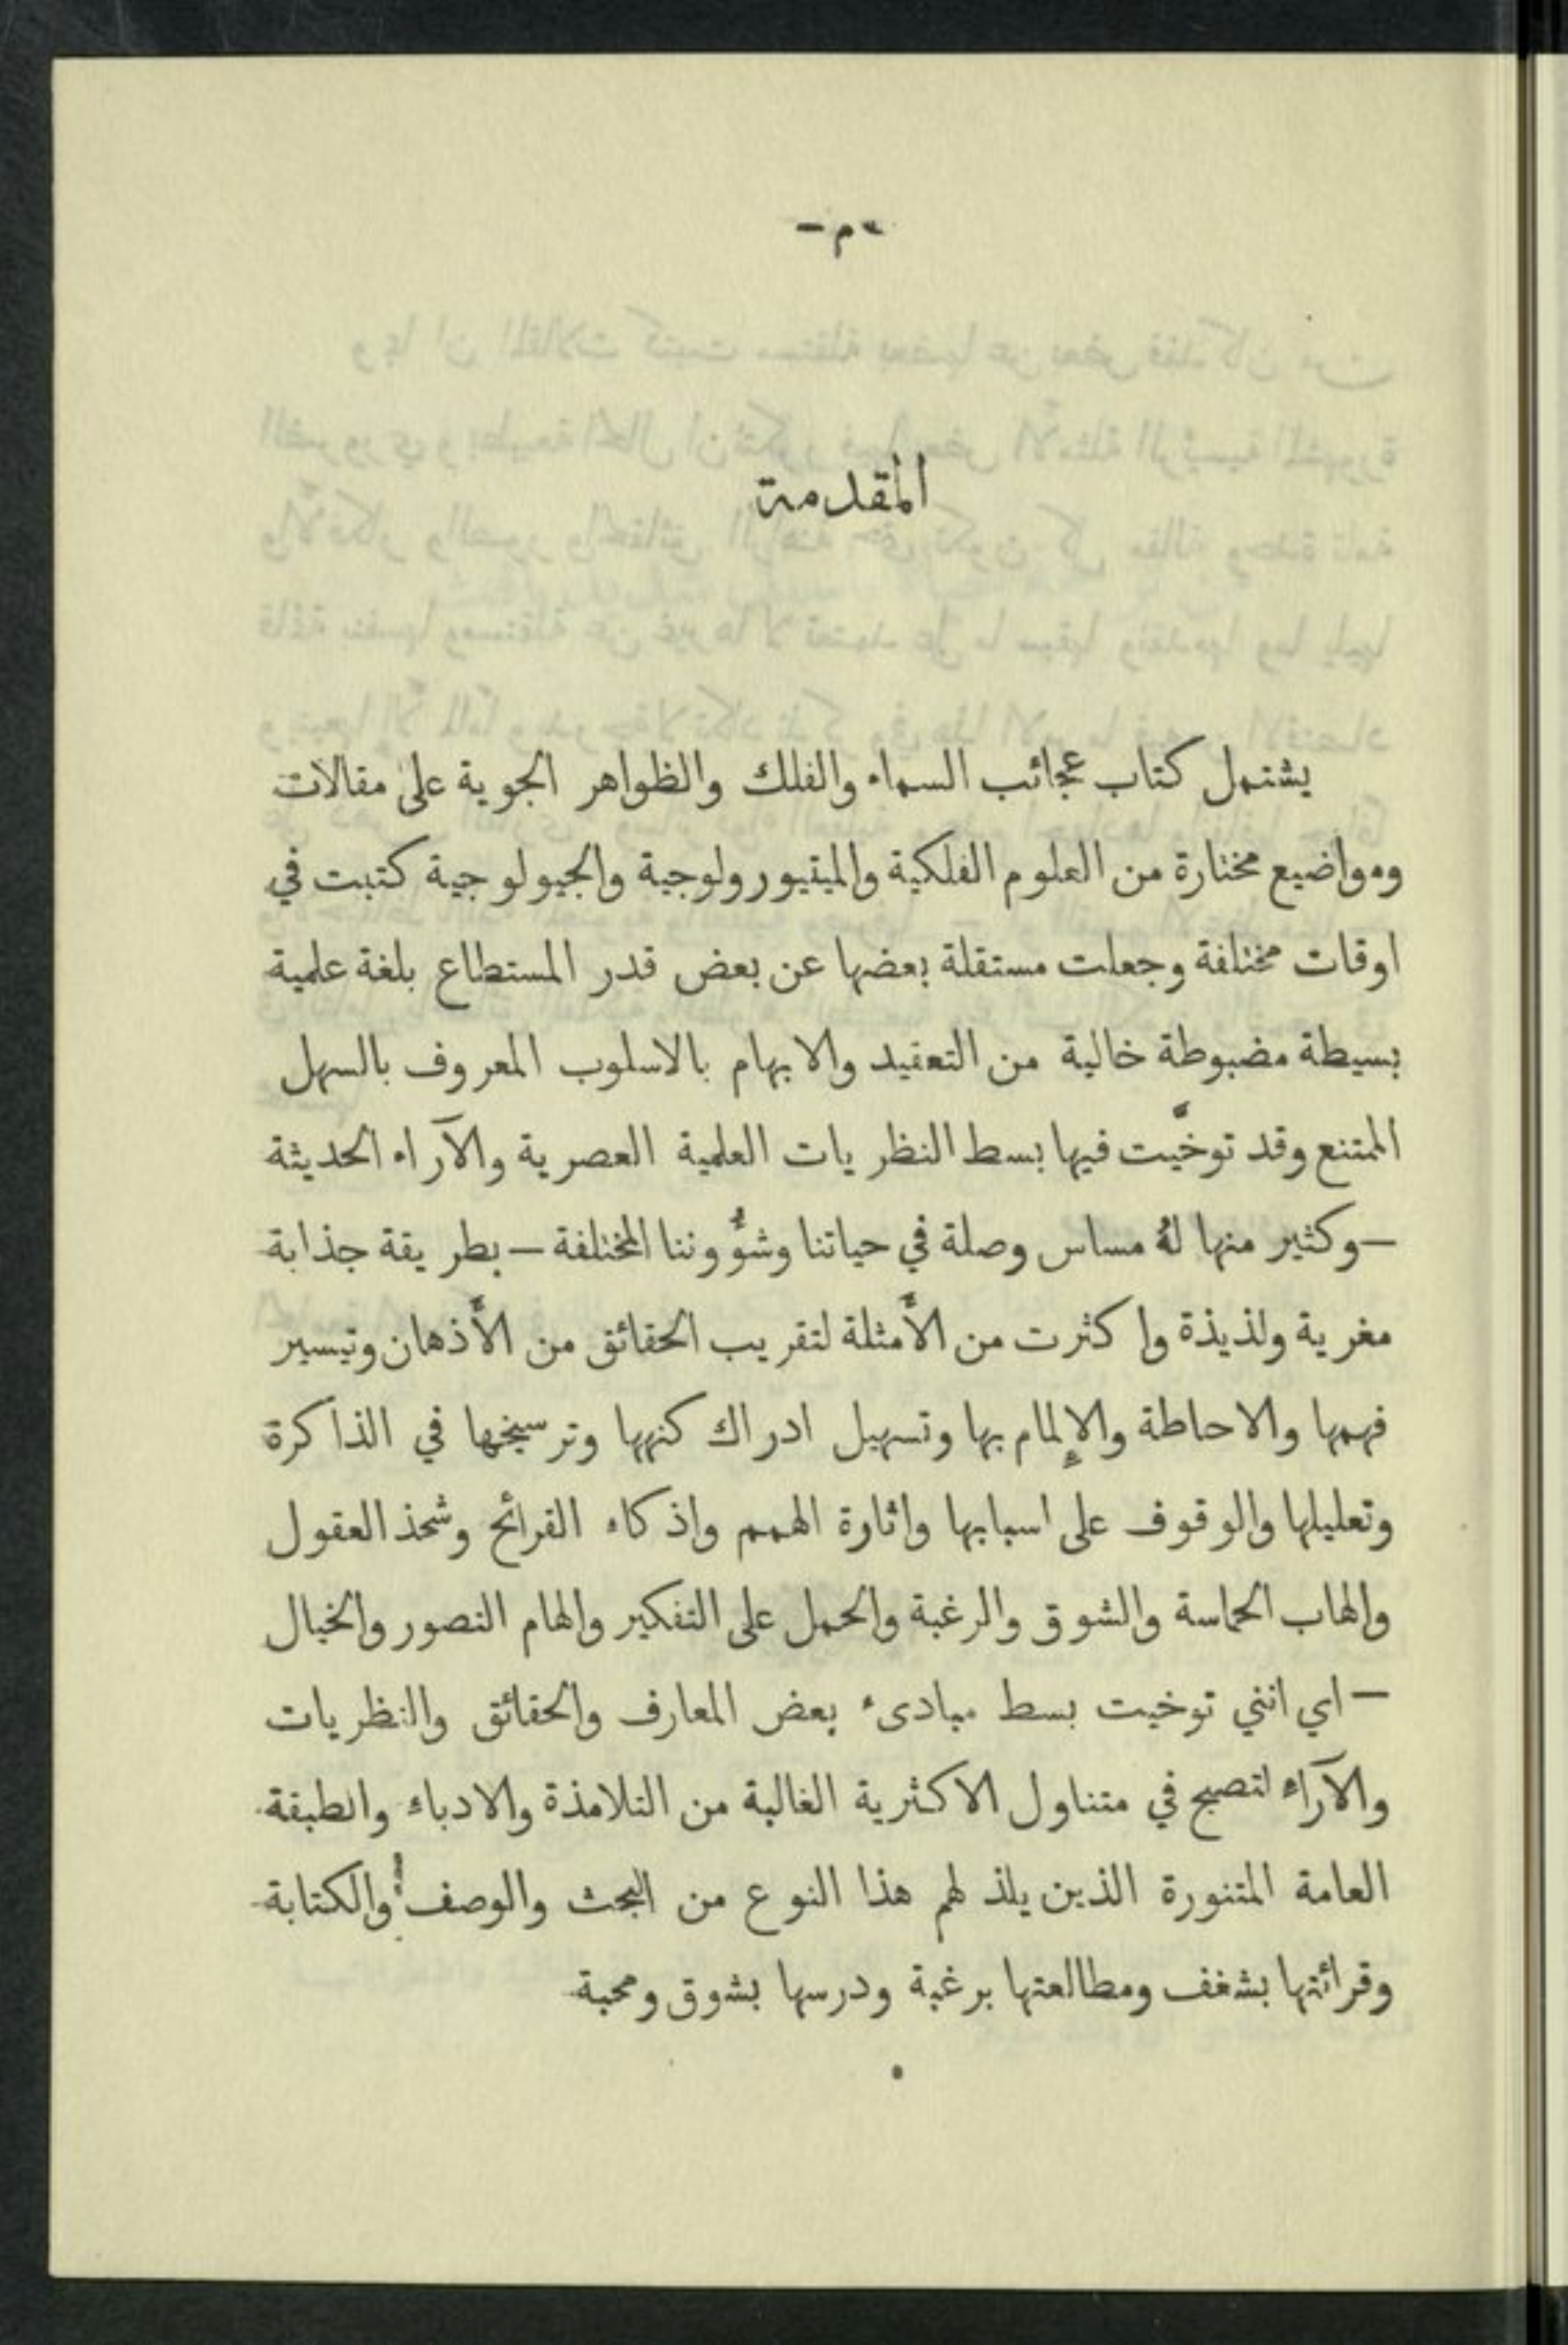 - م -
المقدمة
يشتمل كتاب عجائب السماء والفلك والظواهر الجوية على مقالات
ومواضيع مختارة من العلوم الفلكية والميتيورولوجية والجيولوجية كتبت في
اوقات مختلفة وجعلت مستقلة بعضها عن بعض قدر المستطاع بلغة علمية
بسيطة مضبوطة خالية من التعقيد والابهام بالاسلوب المعروف بالسهل
الممتنع وقد توخيَّت فيها بسط النظريات العلمية العصرية والآراء الحديثة
—وكثير منها لهُ مساس وصلة في حياتنا وشؤُوننا المختلفة—بطريقة جذابة
مغرية ولذيذة واكثرت من الأَمثلة لتقريب الحقائق من الأَذهان وتيسير
فهمها والاحاطة والإلمام بها وتسهيل ادراك كنهها وترسيخها في الذاكرة
وتعليلها والوقوف على اسبابها واثارة الهمم واذكاء القرائح وشحذ العقول
والهاب الحماسة والشوق والرغبة والحمل على التفكير والهام التصور والخيال
—اي انني توخيت بسط مبادىء بعض المعارف والحقائق والنظريات
والآراء لتصبح في متناول الاكثرية الغالبة من التلامذة والادباء والطبقة
العامة المتنورة الذين يلذ لهم هذا النوع من البحث والوصف والكتابة
وقرائتها بشغف ومطالعتها برغبة ودرسها بشوق ومحبة